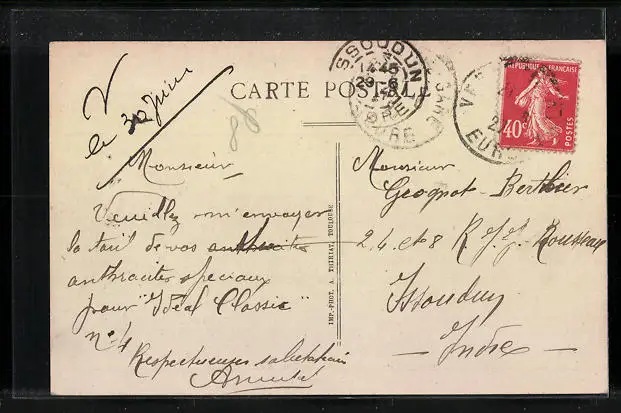 CARTE POSTALE
V
le 30 Juin
86
Monsieur
Veuillez m'envoyer
la tarif de vos
anthracites speciaux
pour "Idéal Classic"
n° 4
Respectueuses salutations
ISSOUDUN
29-6
INDRE
GARE
EURE
REPUBLIQUE FRANÇAISE
40c
POSTES
Monsieur
Geognot-Berthier
2.4. et 8 R J.J. Rousseau
Issoudun
- Indre -
IMP.-PHOT. A. THIRIAT, TOULOUSE